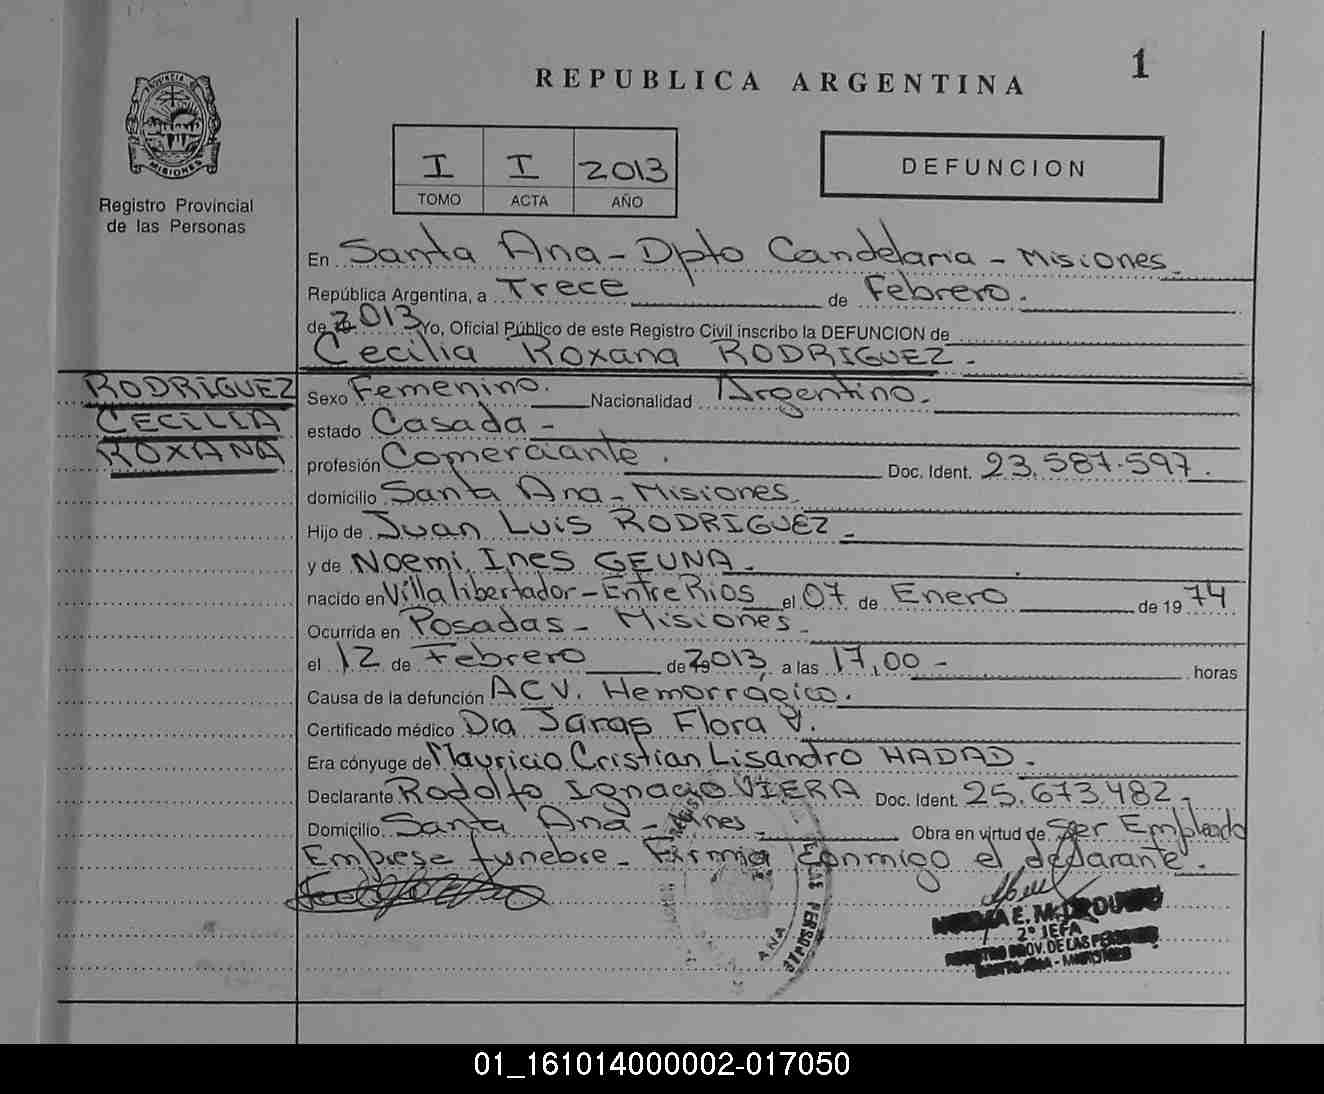 PROVINCIA DE
MISIONES
Registro Provincial
de las Personas
REPUBLICA ARGENTINA
1
I I 2013
TOMO ACTA AÑO
DEFUNCION
En Santa Ana - Dpto Candelaria - Misiones
República Argentina, a Trece de Febrero.
de 2013 Yo, Oficial Público de este Registro Civil inscribo la DEFUNCION de
Cecilia Roxana RODRIGUEZ -
RODRIGUEZ
CECILIA
ROXANA
Sexo Femenino. Nacionalidad Argentino.
estado Casada -
profesión Comerciante. Doc. Ident. 23.587.597.
domicilio Santa Ana - Misiones
Hijo de Juan Luis RODRIGUEZ -
y de Noemi Ines GEUNA.
nacido en Villa libertador - Entre Rios el 07 de Enero de 1974
Ocurrida en Posadas - Misiones.
el 12 de Febrero de 2013 a las 17,00 - horas
Causa de la defunción ACV. Hemorrágico.
Certificado médico Dra Flora V.
Era cónyuge de Mauricio Cristian Lisandro HADAD.
Declarante Rodolfo Ignacio VIERA Doc. Ident. 25.673.482 -
Domicilio Santa Ana - Mnes Obra en virtud de Ser Empleado
Emprese funebre - Firma conmigo el declarante.
LAS PERSONAS
ANA
E.
2° JEFA
PROV. DE LAS
01_161014000002-017050